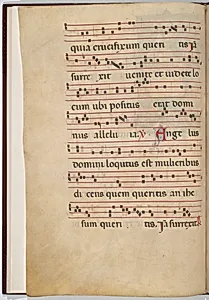 quia crucifixum queri tis p
surre xit venite et videte lo
cum ubi positus erat domi
nus allelu ia. v Ange lus
domini loqutus est mulieribus
di cens quem queritis an ihe
sum queri tis.